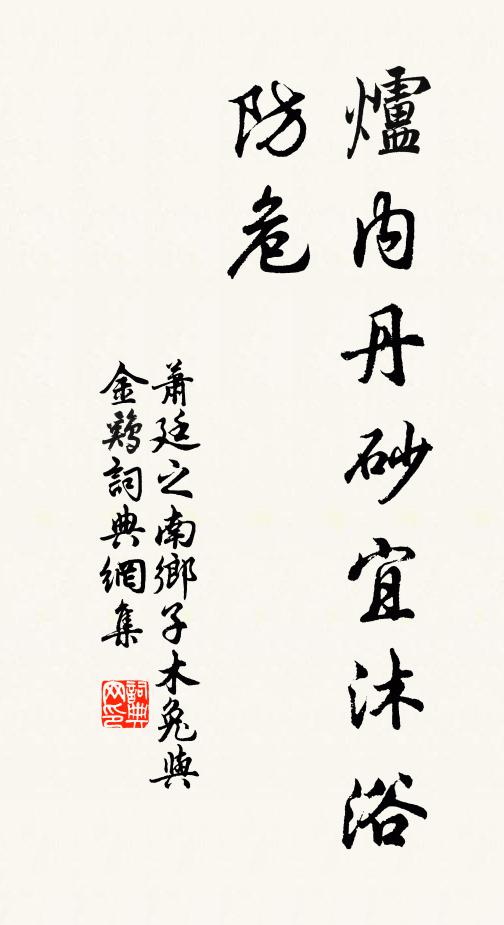 爐内丹砂宜沐浴
防危
蕭廷之南鄉子木兔與
金鷄詞典網集
詞典
网印